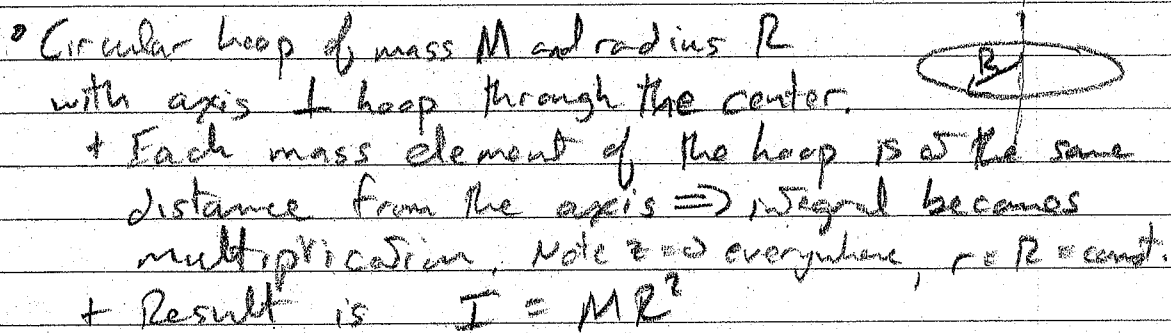 • Circular hoop of mass M and radius R
R
with axis ⊥ hoop through the center.
+ Each mass element of the hoop is at the same
distance from the axis => integral becomes
multiplication, Note z=0 everywhere, r=R=const.
+ Result is I = MR²